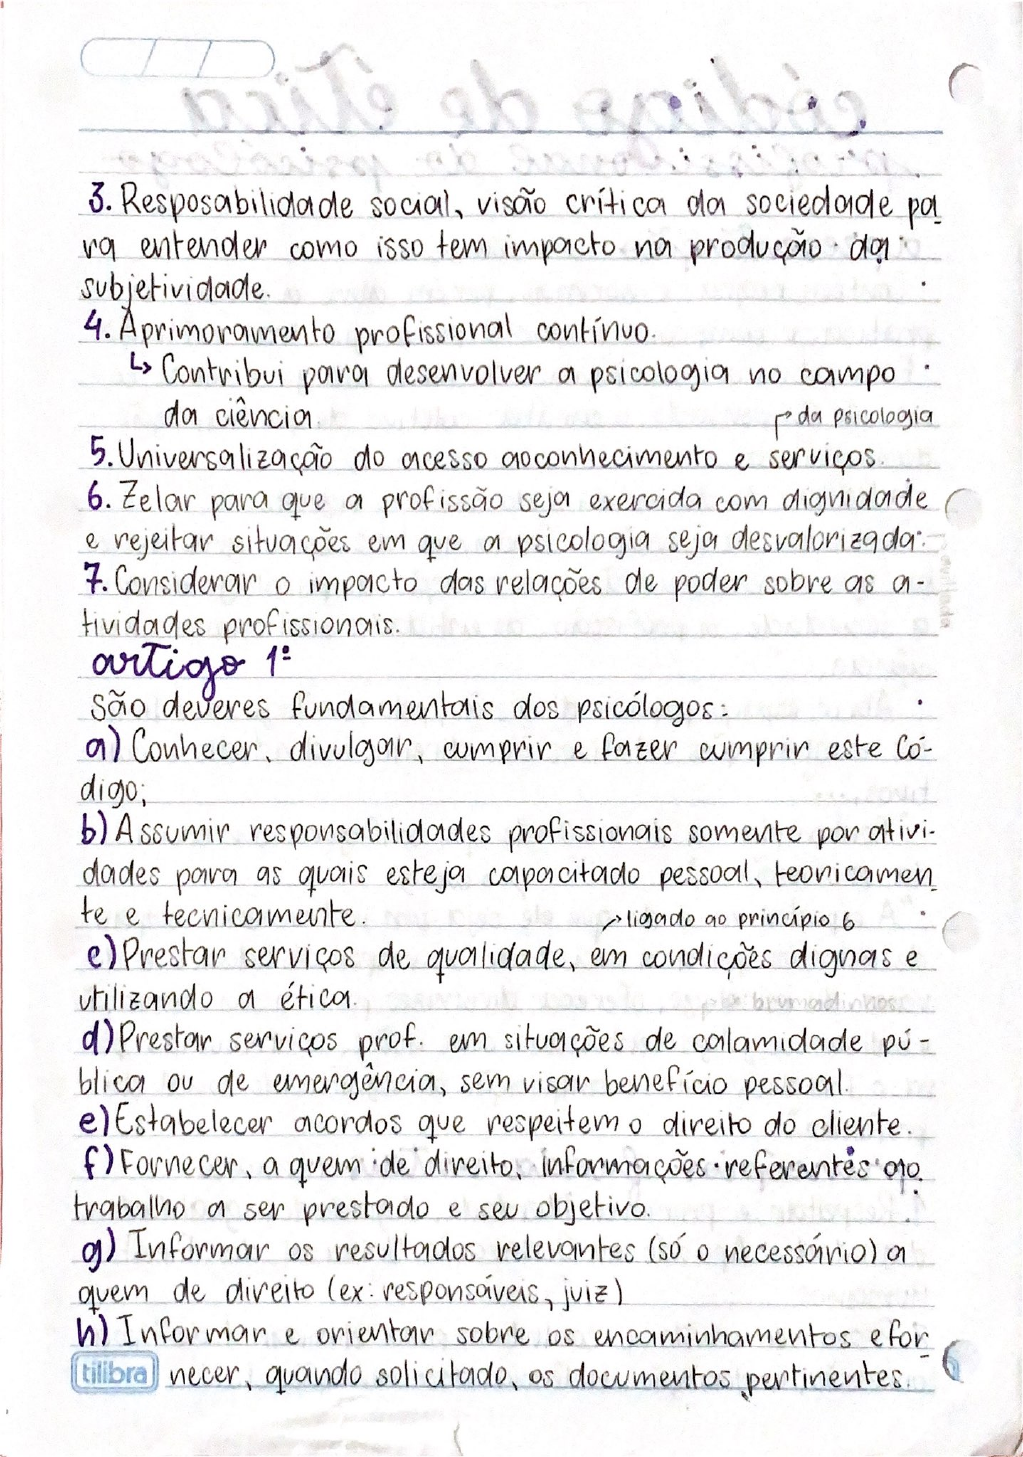 3. Resposabilidade social, visão crítica da sociedade pa
ra entender como isso tem impacto na produção da
subjetividade.
4. Aprimoramento profissional contínuo.
↳ Contribui para desenvolver a psicologia no campo
da ciência.
↱ da psicologia
5. Universalização do acesso ao conhecimento e serviços.
6. Zelar para que a profissão seja exercida com dignidade
e rejeitar situações em que a psicologia seja desvalorizada.
7. Considerar o impacto das relações de poder sobre as a-
tividades profissionais.
artigo 1º
São deveres fundamentais dos psicólogos:
a) Conhecer, divulgar, cumprir e fazer cumprir este Có-
digo;
b) Assumir responsabilidades profissionais somente por ativi-
dades para as quais esteja capacitado pessoal, teoricamen
te e tecnicamente.
↗ ligado ao princípio 6
c) Prestar serviços de qualidade, em condições dignas e
utilizando a ética.
d) Prestar serviços prof. em situações de calamidade pú-
blica ou de emergência, sem visar benefício pessoal.
e) Estabelecer acordos que respeitem o direito do cliente.
f) Fornecer, a quem de direito, informações referentes ao
trabalho a ser prestado e seu objetivo.
g) Informar os resultados relevantes (só o necessário) a
quem de direito (ex: responsáveis, juiz)
h) Informar e orientar sobre os encaminhamentos e for
necer, quando solicitado, os documentos pertinentes.
tilibra